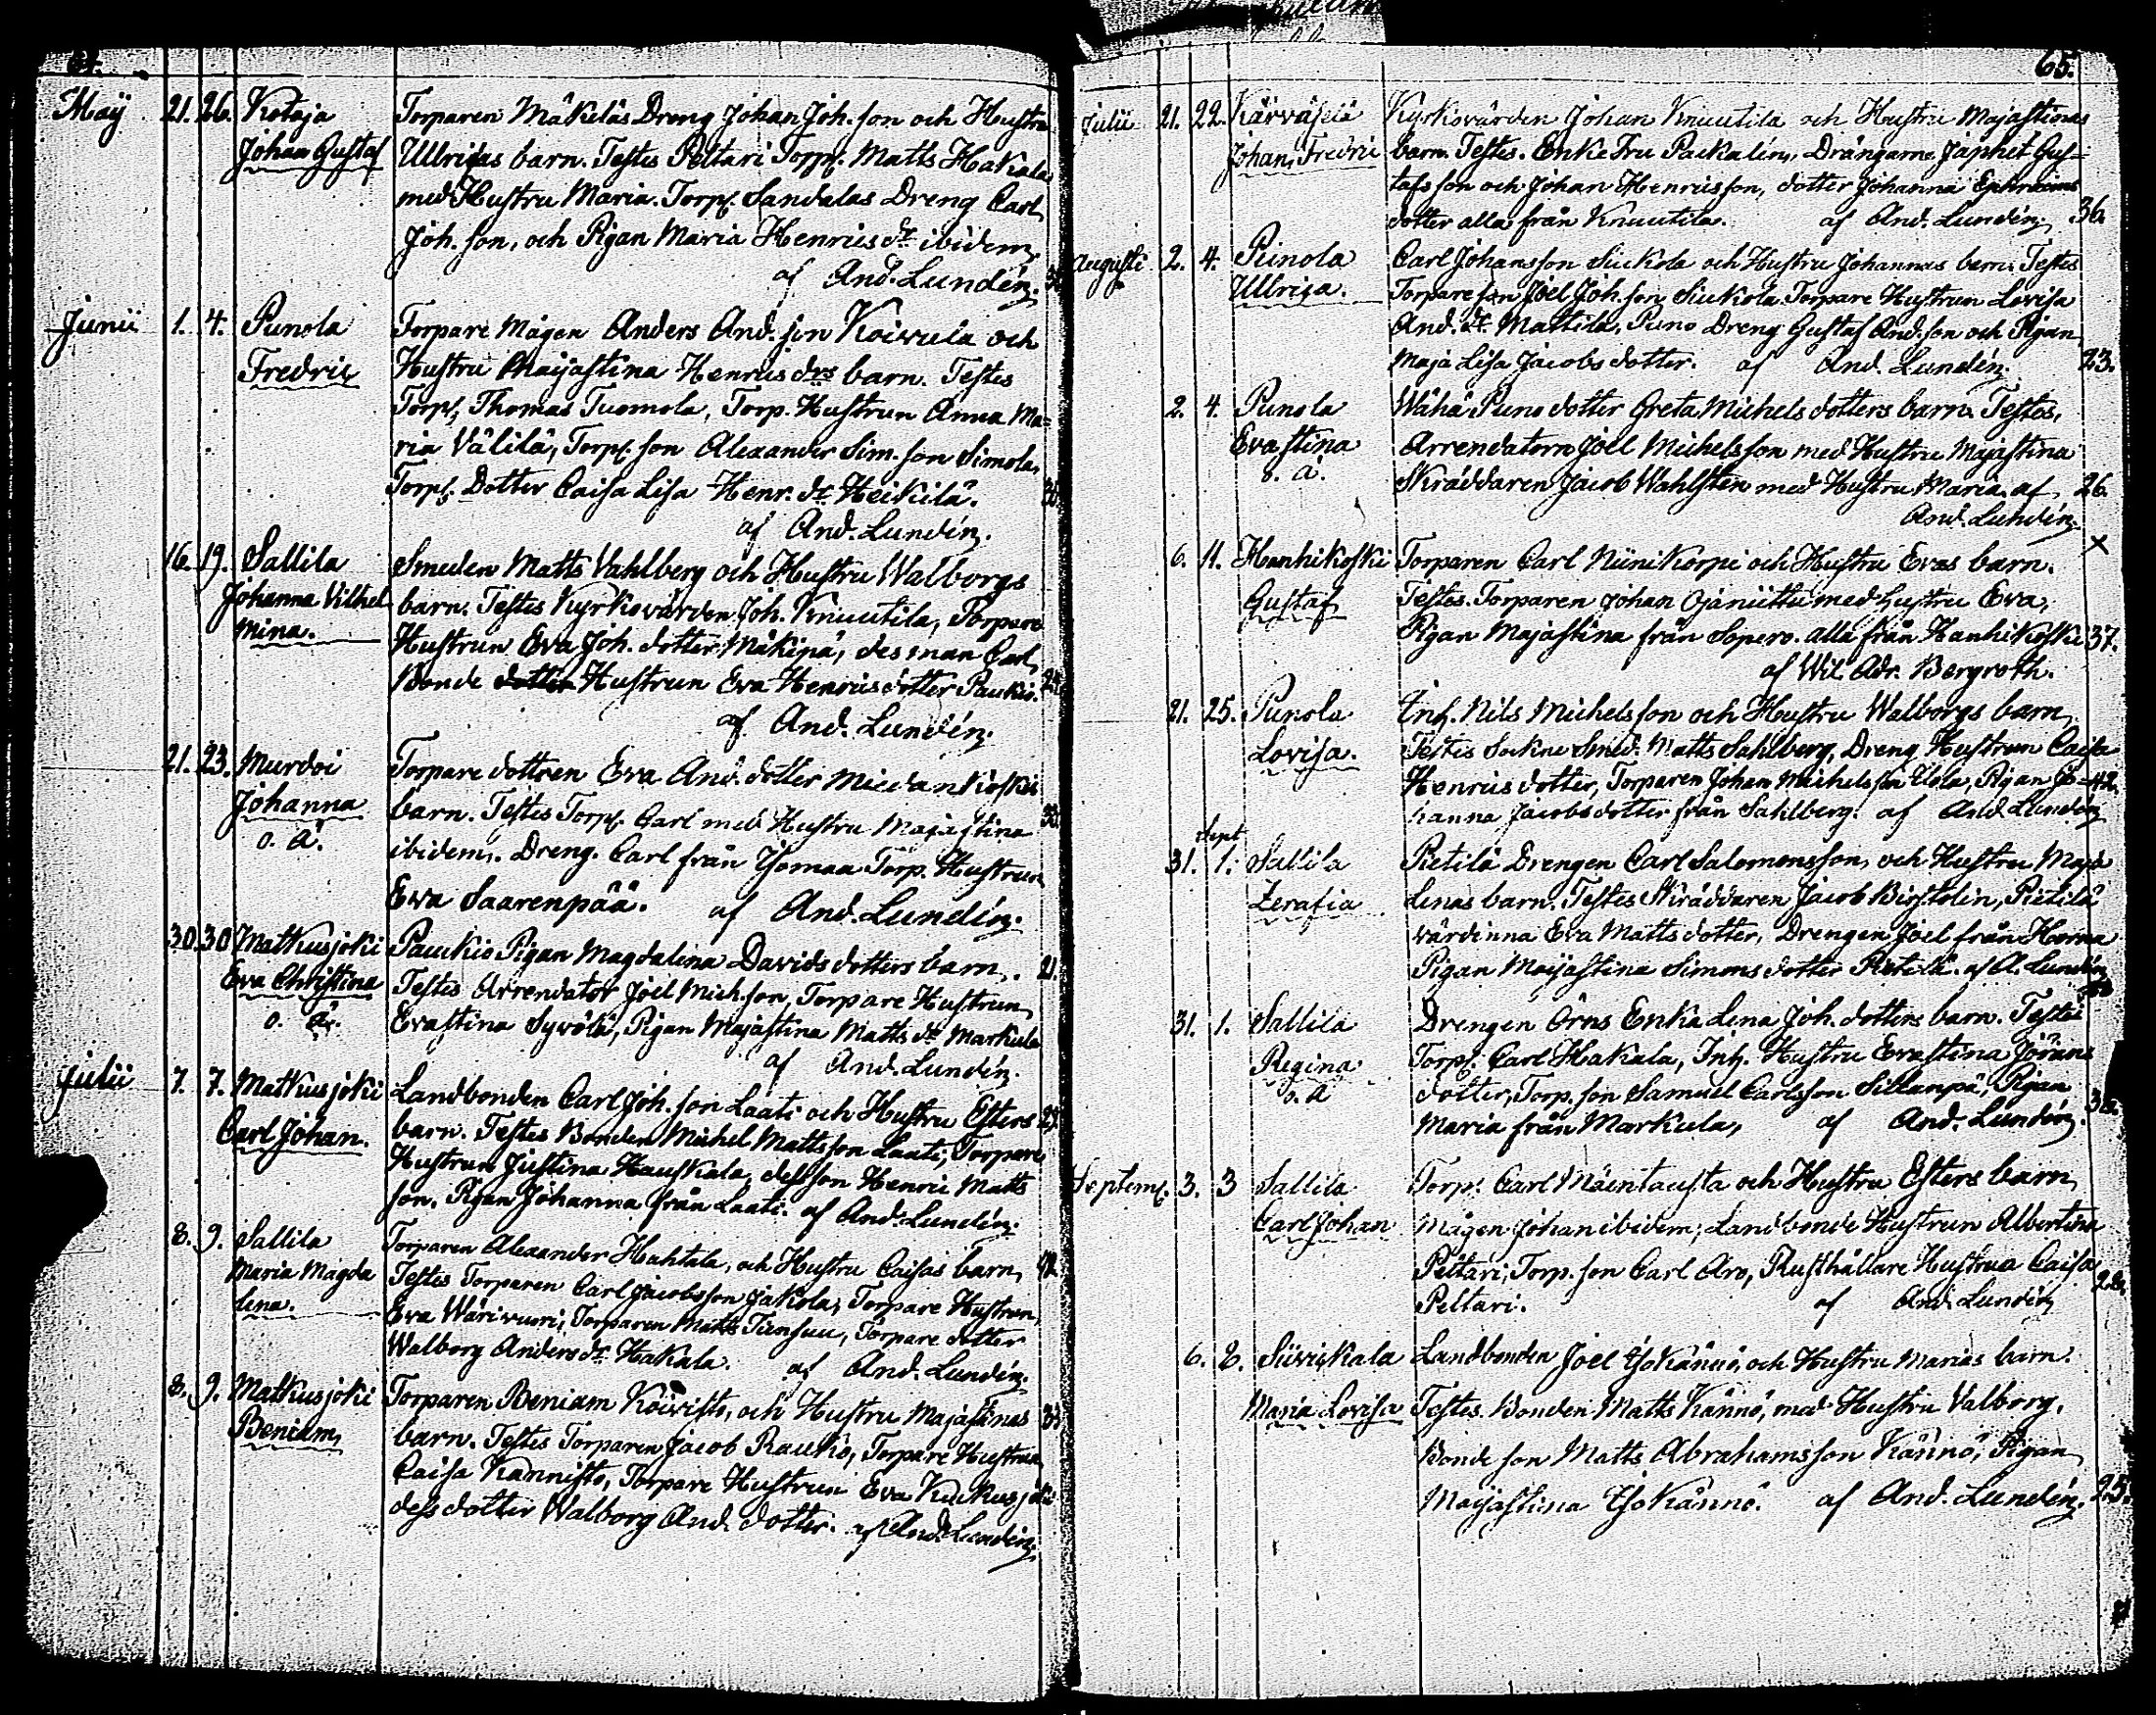 64.
Maÿ 21. 26. Kotoja Torparen Mäkeläs Dreng Johan Joh. son och Hustru
Johan Gustaf Ullricas barn. Testes Peltari Torp. Matts Hakala
med Hustru Maria. Torp. Sandalas Dreng Carl
Joh. son, och Pigan Maria Henricsdr ibidem,
af And. Lundén.
Junii 1. 4. Punola Torpare Mågen Anders And. son Koivula och
Fredric Hustru Maijastina Henricsdrs barn. Testes
Torp. Thomas Tuomola, Torp. Hustrun Anna Ma=
ria Välilä, Torp. son Alexander Sim. son Simola,
Torp. Dotter Caisa Lisa Henr. dr Heikilä.
af And. Lundén.
16. 19. Sallila Smeden Matts Vahlberg och Hustru Walborgs
Johanna Vilhel barn. Testes Kyrkovärden Joh. Knuutila, Torpare
mina. Hustrun Eva Joh. dotter Mäkipä, des man Carl,
Bonde dotter Hustrun Eva Henricsdotter Paukio.
af And. Lundén.
21. 23. Murdoi Torpare dottren Eva And. dotter Miedankoskis
Johanna barn. Testes Torp. Carl med Hustru Majastina
o. ä. ibidem. Dreng. Carl från Isomaa Torp. Hustrun
Eva Saarenpää. af And. Lundén.
30. 30 Matkusjoki Paukio Pigan Magdalena Davidsdotters barn. 21.
Eva Christina Testes Arrendator Joel Mich. son, Torpare Hustrun
o. ä. Evastina Syvölä, Pigan Majastina Matts dr Markula
af And. Lundén.
Julii 7. 7. Matkusjoki Landbonden Carl Joh. son Laati och Hustru Esters
Carl Johan. barn. Testes Bonden Michel Mattsson Laati, Torpare
Hustrun Justina Hauskala, dess son Henric Matts
son. Pigan Johanna från Laati. af And. Lundén.
8. 9. Sallila Torparen Alexander Huhtala, och Hustru Caisas barn,
Maria Magda Testes Torparen Carl Jacobsson Jakola, Torpare Hustrun
lena. Eva Wärivuori, Torparen Matts Tunsuu, Torpare dotter
Walborg Anders dr Hakala. af And. Lundén.
8. 9. Matkusjoki Torparen Beniam Koivisto, och Hustru Majastinas
Beniam, barn. Testes Torparen Jacob Rauko, Torpare Hustrun
Caisa Kannisto, Torpare Hustrun Eva
dess dotter Walborg And. dotter. af And. Lundén.
65.
Julii 21. 22. Kärväselä Kyrkovärden Johan Knuutila och Hustru Majastinas
Johan Fredric barn. Testes. EnkeFru Packalén, Drängarne Japhet Gus=
tafsson och Johan Henricsson, dotter Johanna Ephraims
dotter alla från Knuutila. af And. Lundén, 36.
Augusti 2. 4. Punola Carl Johansson Siukola och Hustru Johannas barn. Testes
Ullrica. Torpare son Joel Joh. son Siukola. Torpare Hustrun Lovisa
And. dr Mattila, Puno Dreng Gustaf And. son och Pigan
Maja Lisa Jacobsdotter. af And. Lundén. 23.
2. 4. Punola Wähä Puno dotter Greta Michelsdotters barn. Testes,
Evastina Arrendatorn Joel Michelsson med Hustru Majastina
o. ä. Skräddaren Jacob Wahlstén med Hustru Maria. af 26.
And. Lundén.
6. 11. Hanhikoski Torparen Carl Niinikorpi och Hustru Evas barn.
Gustaf Testes. Torparen Johan Ojaniittu med Hustru Eva,
Pigan Majastina från Sopero. alla från Hanhikoski 37.
af Wil. Adr. Bergroth.
21. 25. Punola Inh. Nils Michelsson och Hustru Walborgs barn,
Lovisa. Testes Sockne Smed. Matts Sahlberg, Dreng Hustrun Caisa
Henricsdotter, Torparen Johan Michelsson Uola, Pigan Jo= 42.
hanna Jacobsdotter från Sahlberg. af And. Lundén
Sept
31. 1. Sallila Pietilä Drengen Carl Salomonsson, och Hustru Maja
Zerafia Lenas barn. Testes Skräddaren Jacob Birstolin, Pietilä
värdinna Eva Matts dotter, Drengen Joel från Horna
Pigan Maijastina Simons dotter Pietilä. af A. Lundén
31. 1. Sallila Drengen Örns Enka Lena Joh. dotters barn. Testes
Regina Torp. Carl Hakala, Inh. Hustru Evastina Jörans
o. ä dotter, Torp. son Samuel Carlsson Sillanpä, Pigan
Maria från Markula, af And. Lundén.
Septemb. 3. 3 Sallila Torp. Carl Mäentausta och Hustru Esters barn,
Carl Johan Mågen Johan ibidem, Landbonde Hustrun Albertina
Peltari, Torp. son Carl Aro, Rusthållare Hustrua Caisa
Peltari. af And. Lundén
6. 8. Suiviskala Landbonden Joel Isokännö, och Hustru Marias barn.
Maria Lovisa Testes. Bonden Matts Kännö, med Hustru Valborg,
Bonde son Matts Abrahamsson Kännö, Pigan
Maijastina Isokännö. af And. Lundén. 25.